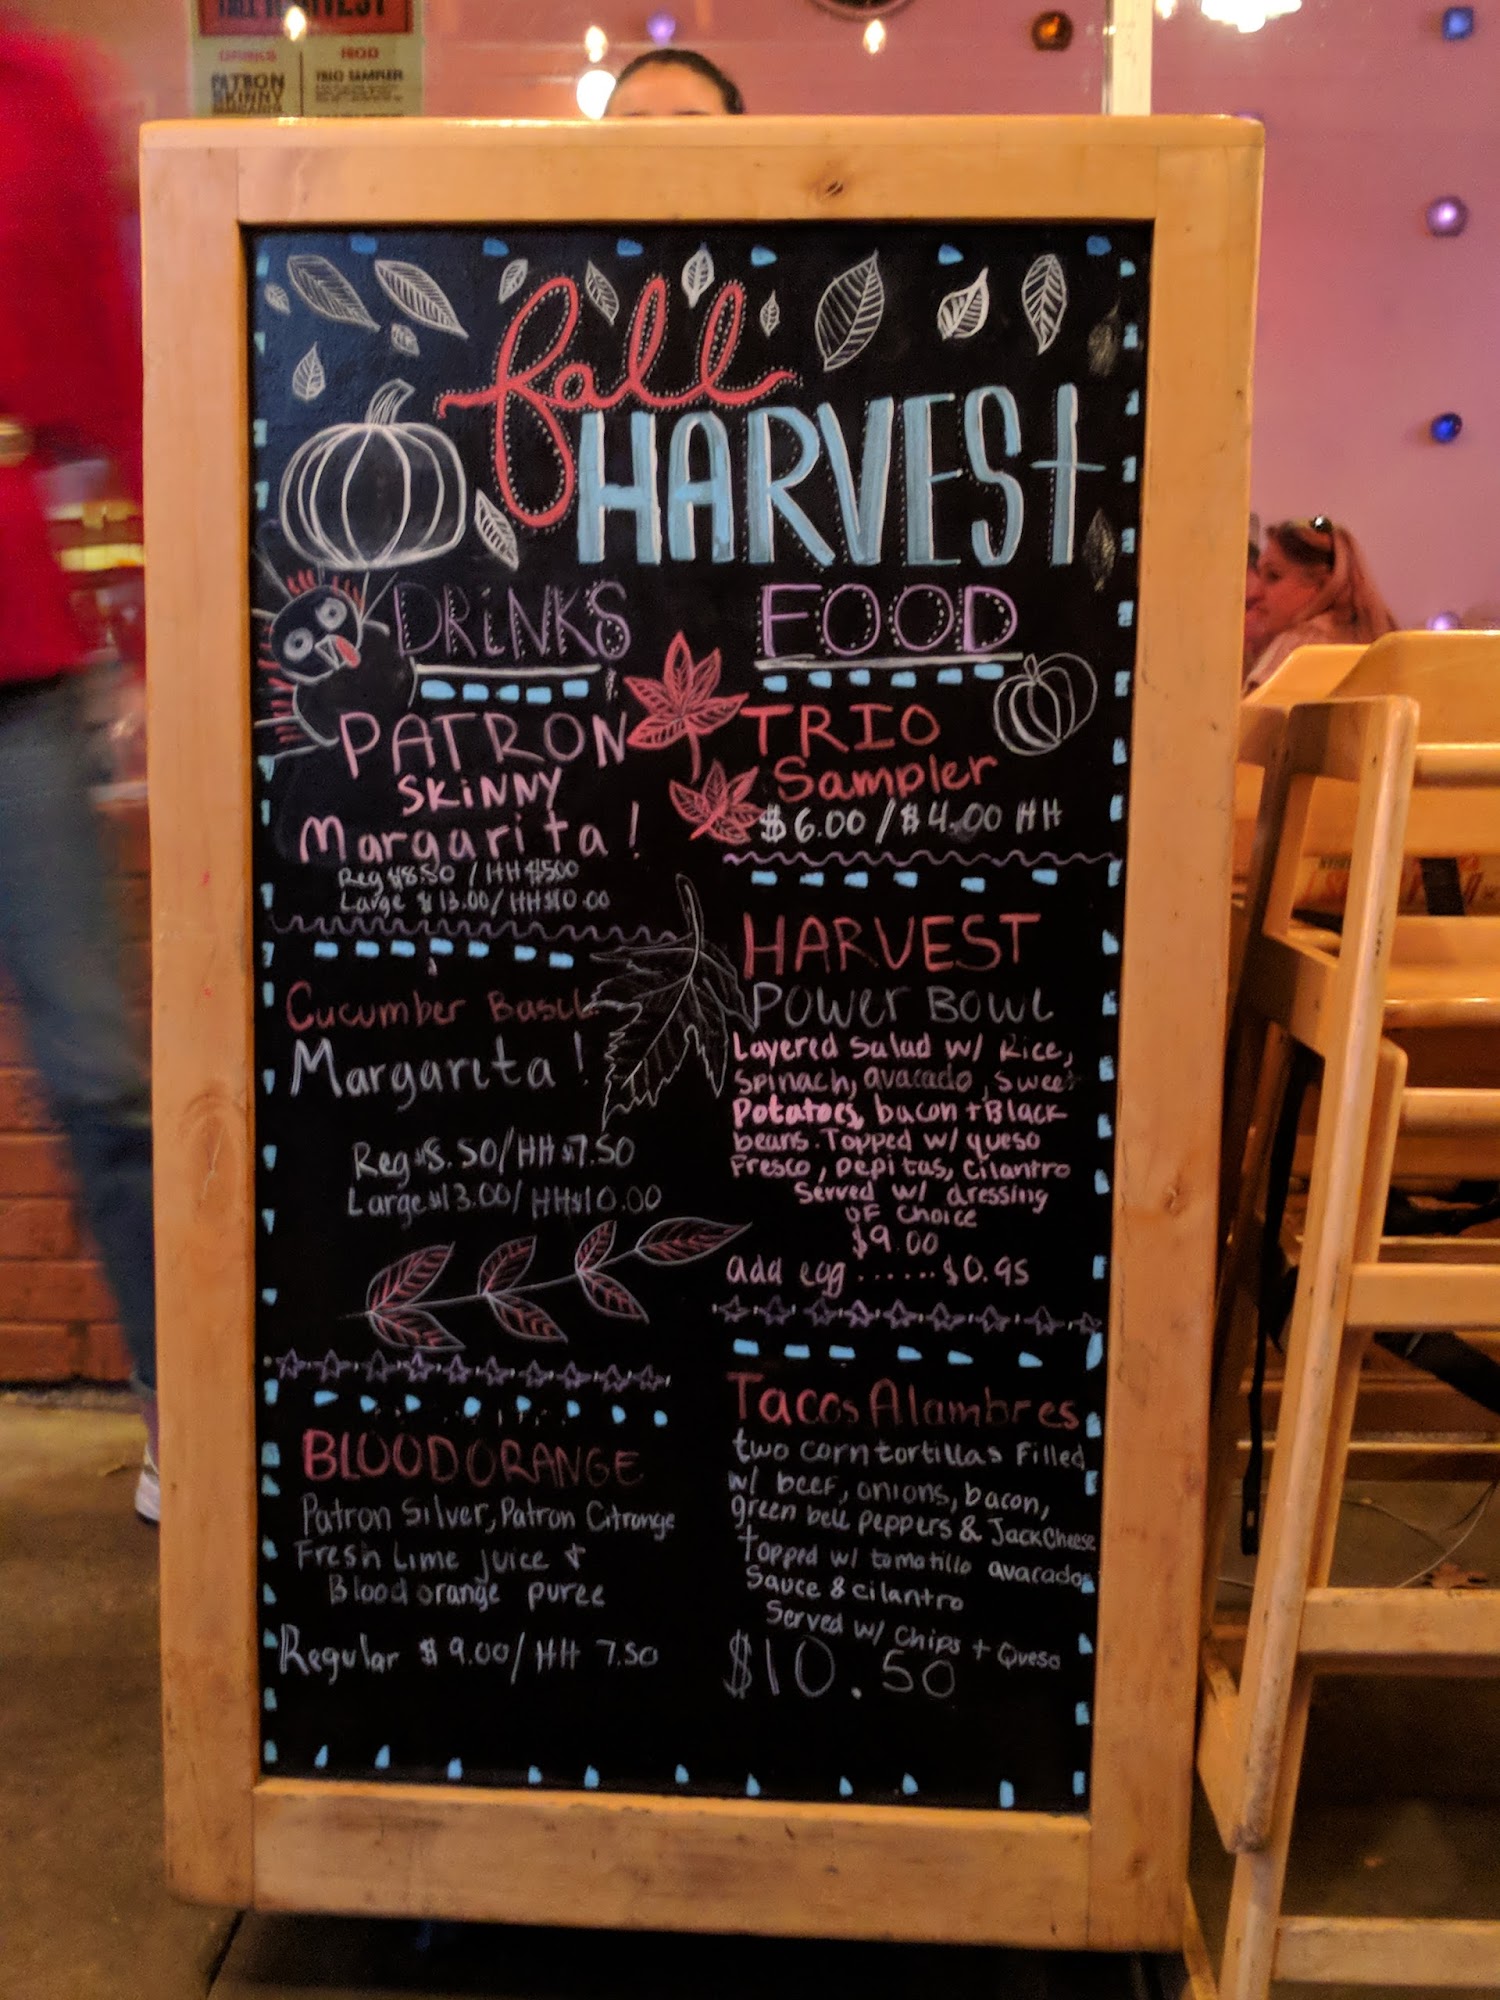 FALL HARVEST
DRINKS
FOOD
PATRON
SKINNY
TRIO SAMPLER
fall
HARVEST
DRINKS
PATRON
SKINNY
Margarita!
Reg $8.50 / HH $500
Large $13.00/ HH$10.00
Cucumber Basil
Margarita!
Reg $8.50/HH $7.50
Large $13.00/ HH$10.00
BLOOD ORANGE
Patron Silver, Patron Citronge
Fresh Lime juice +
Blood orange puree
Regular $9.00/ HH 7.50
FOOD
TRIO
Sampler
$6.00/$4.00 HH
HARVEST
POWER BOWL
Layered Salad w/ Rice,
Spinach, avacado, sweet
Potatoes, bacon + Black
beans. Topped w/ queso
Fresco, pepitas, Cilantro
Served w/ dressing
OF Choice
$9.00
add egg ...... $0.95
Tacos Alambres
two corn tortillas Filled
w/ beef, onions, bacon,
green bell peppers & Jack Cheese
topped w/ tomatillo avacados
Sauce & cilantro
Served w/ Chips + Queso
$10.50